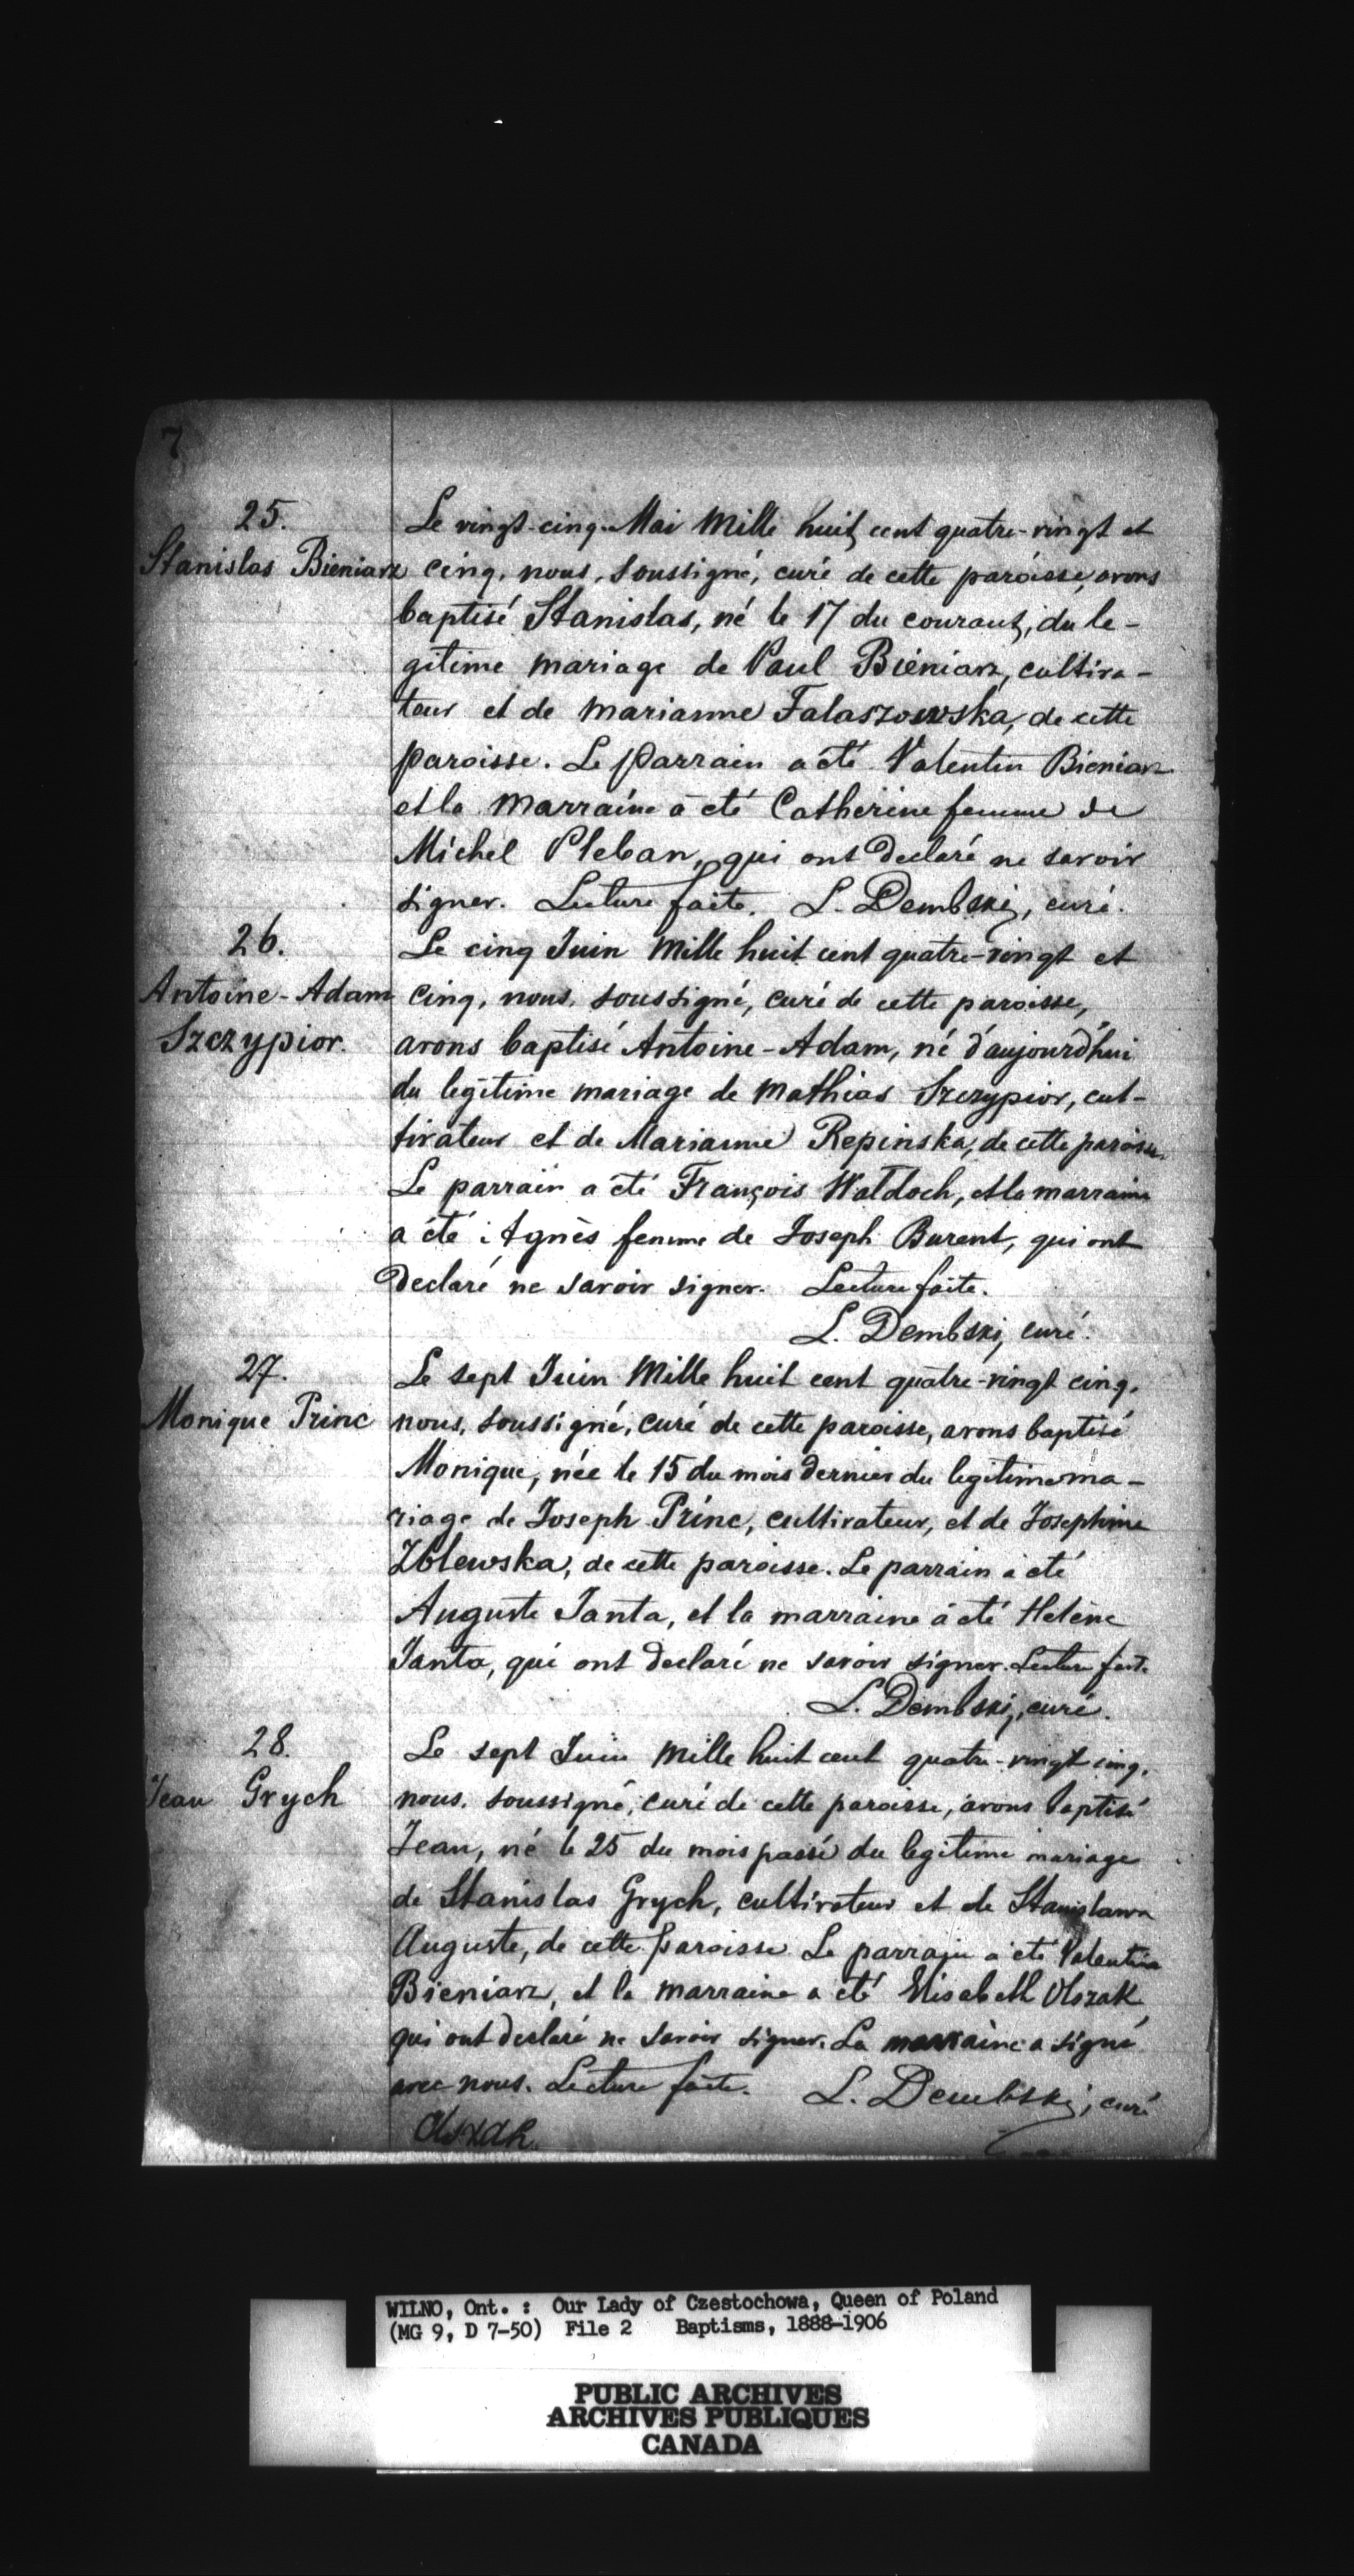 7
25.
Stanislas Bieniarz
Le vingt-cinq Mai Mille huit cent quatre-vingt et
cinq, nous, soussigné, curé de cette paroisse, avons
baptisé Stanislas, né le 17 du courant, du le-
gitime mariage de Paul Bieniarz, cultiva-
teur et de Marianne Falaszowska, de cette
paroisse. Le Parrain a été Valentin Bieniarz
et la Marraine a été Catherine femme de
Michel Pleban, qui ont declaré ne savoir
signer. Lecture faite. L. Dembski, curé.
26.
Antoine-Adam
Szczypior.
Le cinq Juin Mille huit cent quatre-vingt et
cinq, nous, soussigné, curé de cette paroisse,
avons baptisé Antoine-Adam, né d'aujourd'hui
du legitime mariage de Mathias Szczypior, cul-
tivateur et de Marianne Repinska, de cette paroisse.
Le parrain a été François Waldoch, et la marraine
a été Agnès femme de Joseph Burent, qui ont
declaré ne savoir signer. Lecture faite.
L. Dembski, curé.
27.
Monique Princ
Le sept Juin Mille huit cent quatre-vingt cinq,
nous, soussigné, curé de cette paroisse, avons baptisé
Monique, née le 15 du mois dernier du legitime ma-
riage de Joseph Princ, cultivateur, et de Josephine
Zblewska, de cette paroisse. Le parrain a été
Auguste Janta, et la marraine a été Helène
Janta, qui ont declaré ne savoir signer. Lecture faite
L. Dembski, curé.
28.
Jean Grych
Le sept Juin Mille huit cent quatre-vingt cinq,
nous, soussigné, curé de cette paroisse, avons baptisé
Jean, né le 25 du mois passé du legitime mariage
de Stanislas Grych, cultivateur et de Stanislawa
Auguste, de cette paroisse Le parrain a été Valentin
Bieniarz, et la marraine a été Elisabeth Olszak
qui ont declaré ne savoir signer. La marraine a signé
avec nous. Lecture faite. L. Dembski, curé
Olszak.
WILNO, Ont. : Our Lady of Czestochowa, Queen of Poland
(MG 9, D 7-50) File 2 Baptisms, 1888-1906
PUBLIC ARCHIVES
ARCHIVES PUBLIQUES
CANADA